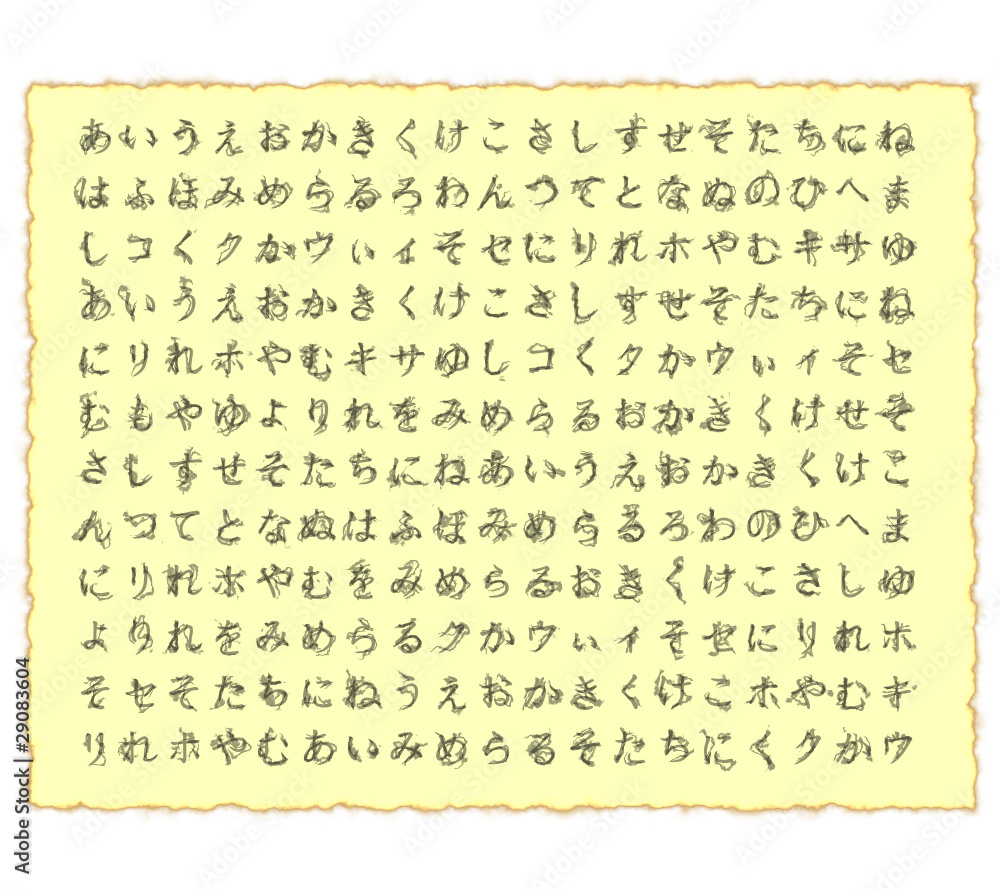 あいうえおかきくけこさしすせそたちにね
はふほみめらるろわんつてとなぬのひへま
しコくクかウぃィそセにりれホやむキサゆ
あいうえおかきくけこさしすせそたちにね
にりれホやむキサゆしコくクかウぃィそセ
むもやゆよりれをみめらるおかきくけせそ
さしすせそたちにねあいうえおかきくけこ
んつてとなぬはふほみめらるろわのひへま
にりれホやむをみめらるおきくけこさしゆ
よりれをみめらるクかウぃィそせにりれホ
そセそたちにねうえおかきくけこホやむキ
りれホやむあいみめらるそたちにくクかウ
Adobe Stock | #29083604